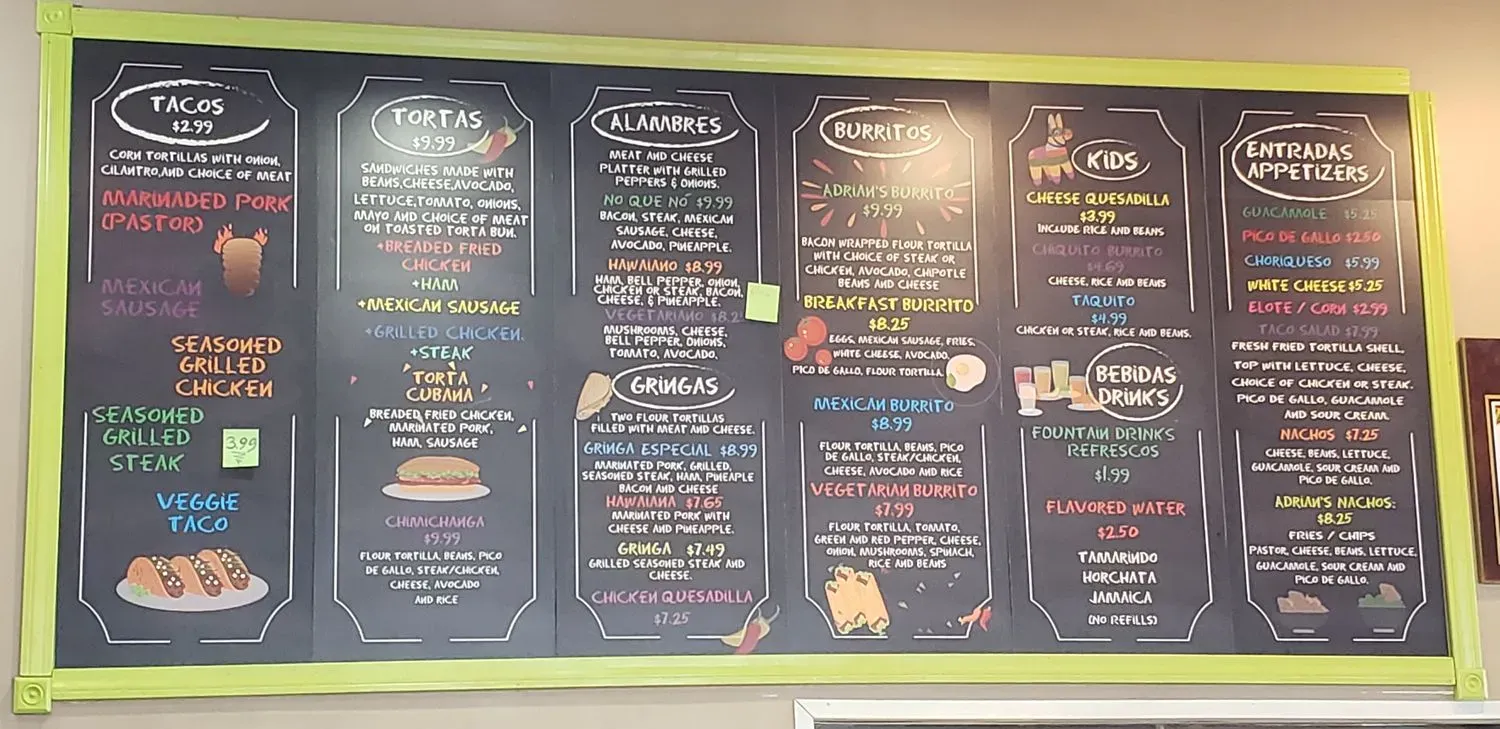 TACOS
$2.99
CORN TORTILLAS WITH ONION,
CILANTRO,AND CHOICE OF MEAT
MARINADED PORK
(PASTOR)
MEXICAN
SAUSAGE
SEASONED
GRILLED
CHICKEN
SEASONED
GRILLED
STEAK
3.99
VEGGIE
TACO
TORTAS
$9.99
SANDWICHES MADE WITH
BEANS,CHEESE,AVOCADO,
LETTUCE,TOMATO, ONIONS,
MAYO AND CHOICE OF MEAT
ON TOASTED TORTA BUN.
+BREADED FRIED
CHICKEN
+HAM
+MEXICAN SAUSAGE
+GRILLED CHICKEN.
+STEAK
TORTA
CUBANA
BREADED FRIED CHICKEN,
MARINATED PORK,
HAM, SAUSAGE
CHIMICHANGA
$9.99
FLOUR TORTILLA, BEANS, PICO
DE GALLO, STEAK/CHICKEN,
CHEESE, AVOCADO
AND RICE
ALAMBRES
MEAT AND CHEESE
PLATTER WITH GRILLED
PEPPERS & ONIONS.
NO QUE NO $9.99
BACON, STEAK, MEXICAN
SAUSAGE, CHEESE,
AVOCADO, PINEAPPLE.
HAWAIANO $8.99
HAM, BELL PEPPER, ONION,
CHICKEN OR STEAK, BACON,
CHEESE, & PINEAPPLE.
VEGETARIANO
MUSHROOMS, CHEESE,
BELL PEPPER, ONIONS,
TOMATO, AVOCADO.
GRINGAS
TWO FLOUR TORTILLAS
FILLED WITH MEAT AND CHEESE.
GRINGA ESPECIAL $8.99
MARINATED PORK, GRILLED,
SEASONED STEAK, HAM, PINEAPLE
BACON AND CHEESE
HAWAIANA $7.65
MARINATED PORK WITH
CHEESE AND PINEAPPLE.
GRINGA $7.49
GRILLED SEASONED STEAK AND
CHEESE.
CHICKEN QUESADILLA
$7.25
BURRITOS
ADRIAN'S BURRITO
$9.99
BACON WRAPPED FLOUR TORTILLA
WITH CHOICE OF STEAK OR
CHICKEN, AVOCADO, CHIPOTLE
BEANS AND CHEESE
BREAKFAST BURRITO
$8.25
EGGS, MEXICAN SAUSAGE, FRIES,
WHITE CHEESE, AVOCADO,
PICO DE GALLO, FLOUR TORTILLA.
MEXICAN BURRITO
$8.99
FLOUR TORTILLA, BEANS, PICO
DE GALLO, STEAK/CHICKEN,
CHEESE, AVOCADO AND RICE
VEGETARIAN BURRITO
$7.99
FLOUR TORTILLA, TOMATO,
GREEN AND RED PEPPER, CHEESE,
ONION, MUSHROOMS, SPINACH,
RICE AND BEANS
KIDS
CHEESE QUESADILLA
$3.99
INCLUDE RICE AND BEANS
CHIQUITO BURRITO
$4.69
CHEESE, RICE AND BEANS
TAQUITO
$4.99
CHICKEN OR STEAK, RICE AND BEANS.
BEBIDAS
DRINKS
FOUNTAIN DRINKS
REFRESCOS
$1.99
FLAVORED WATER
$2.50
TAMARINDO
HORCHATA
JAMAICA
(NO REFILLS)
ENTRADAS
APPETIZERS
GUACAMOLE $5.25
PICO DE GALLO $2.50
CHORIQUESO $5.99
WHITE CHEESE $5.25
ELOTE / CORN $2.99
TACO SALAD $7.99
FRESH FRIED TORTILLA SHELL,
TOP WITH LETTUCE, CHEESE,
CHOICE OF CHICKEN OR STEAK.
PICO DE GALLO, GUACAMOLE
AND SOUR CREAM.
NACHOS $7.25
CHEESE, BEANS, LETTUCE,
GUACAMOLE, SOUR CREAM AND
PICO DE GALLO.
ADRIAN'S NACHOS:
$8.25
FRIES / CHIPS
PASTOR, CHEESE, BEANS, LETTUCE,
GUACAMOLE, SOUR CREAM AND
PICO DE GALLO.